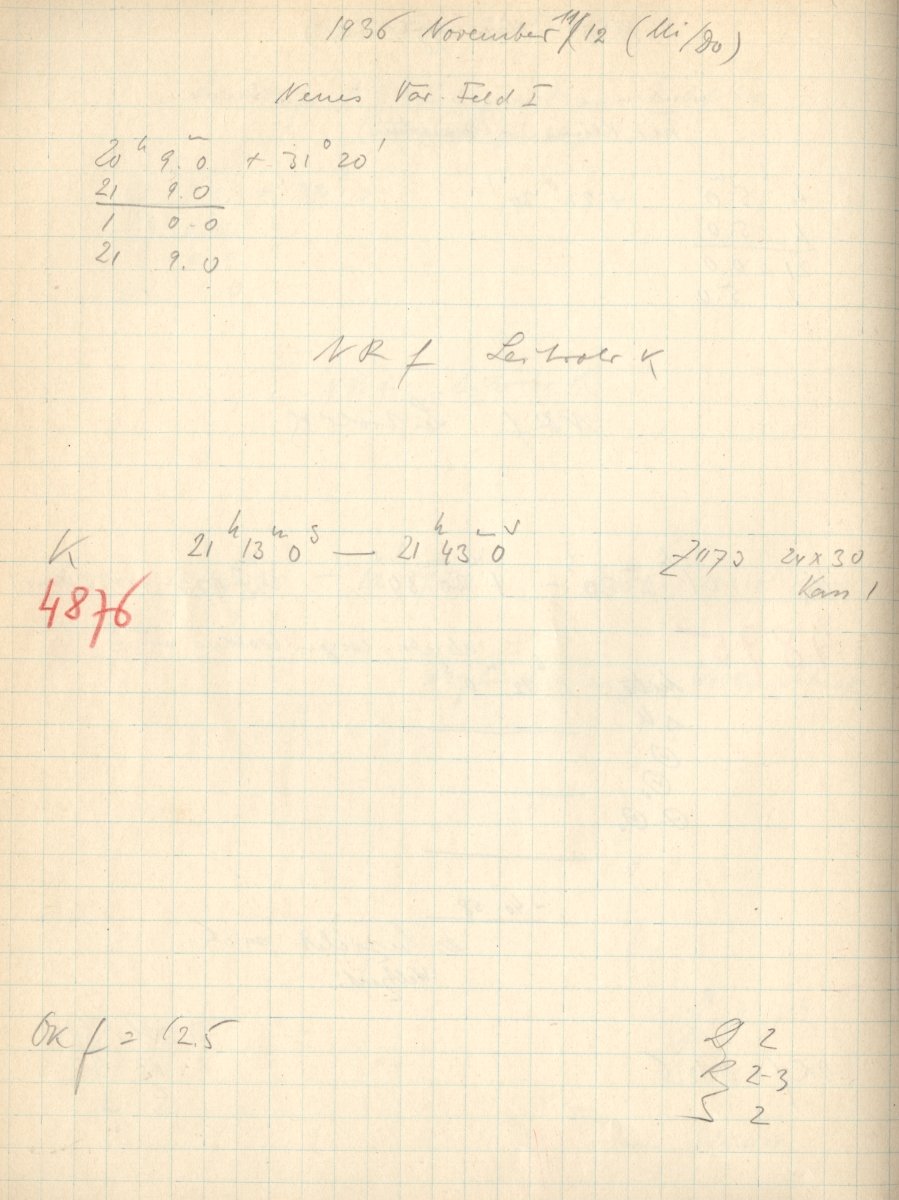 1936 November 11/12 (Mi/Do)
Neues Var. Feld I
20h 9m.0 + 31° 20'
21 9.0
1 0.0
21 9.0
NR f Leitrohr K
K 21h 13m 0s — 21h 43m 0s Z 1173 24x30
4876 Kass 1
OK f = 12.5
D 2
R 2-3
S 2